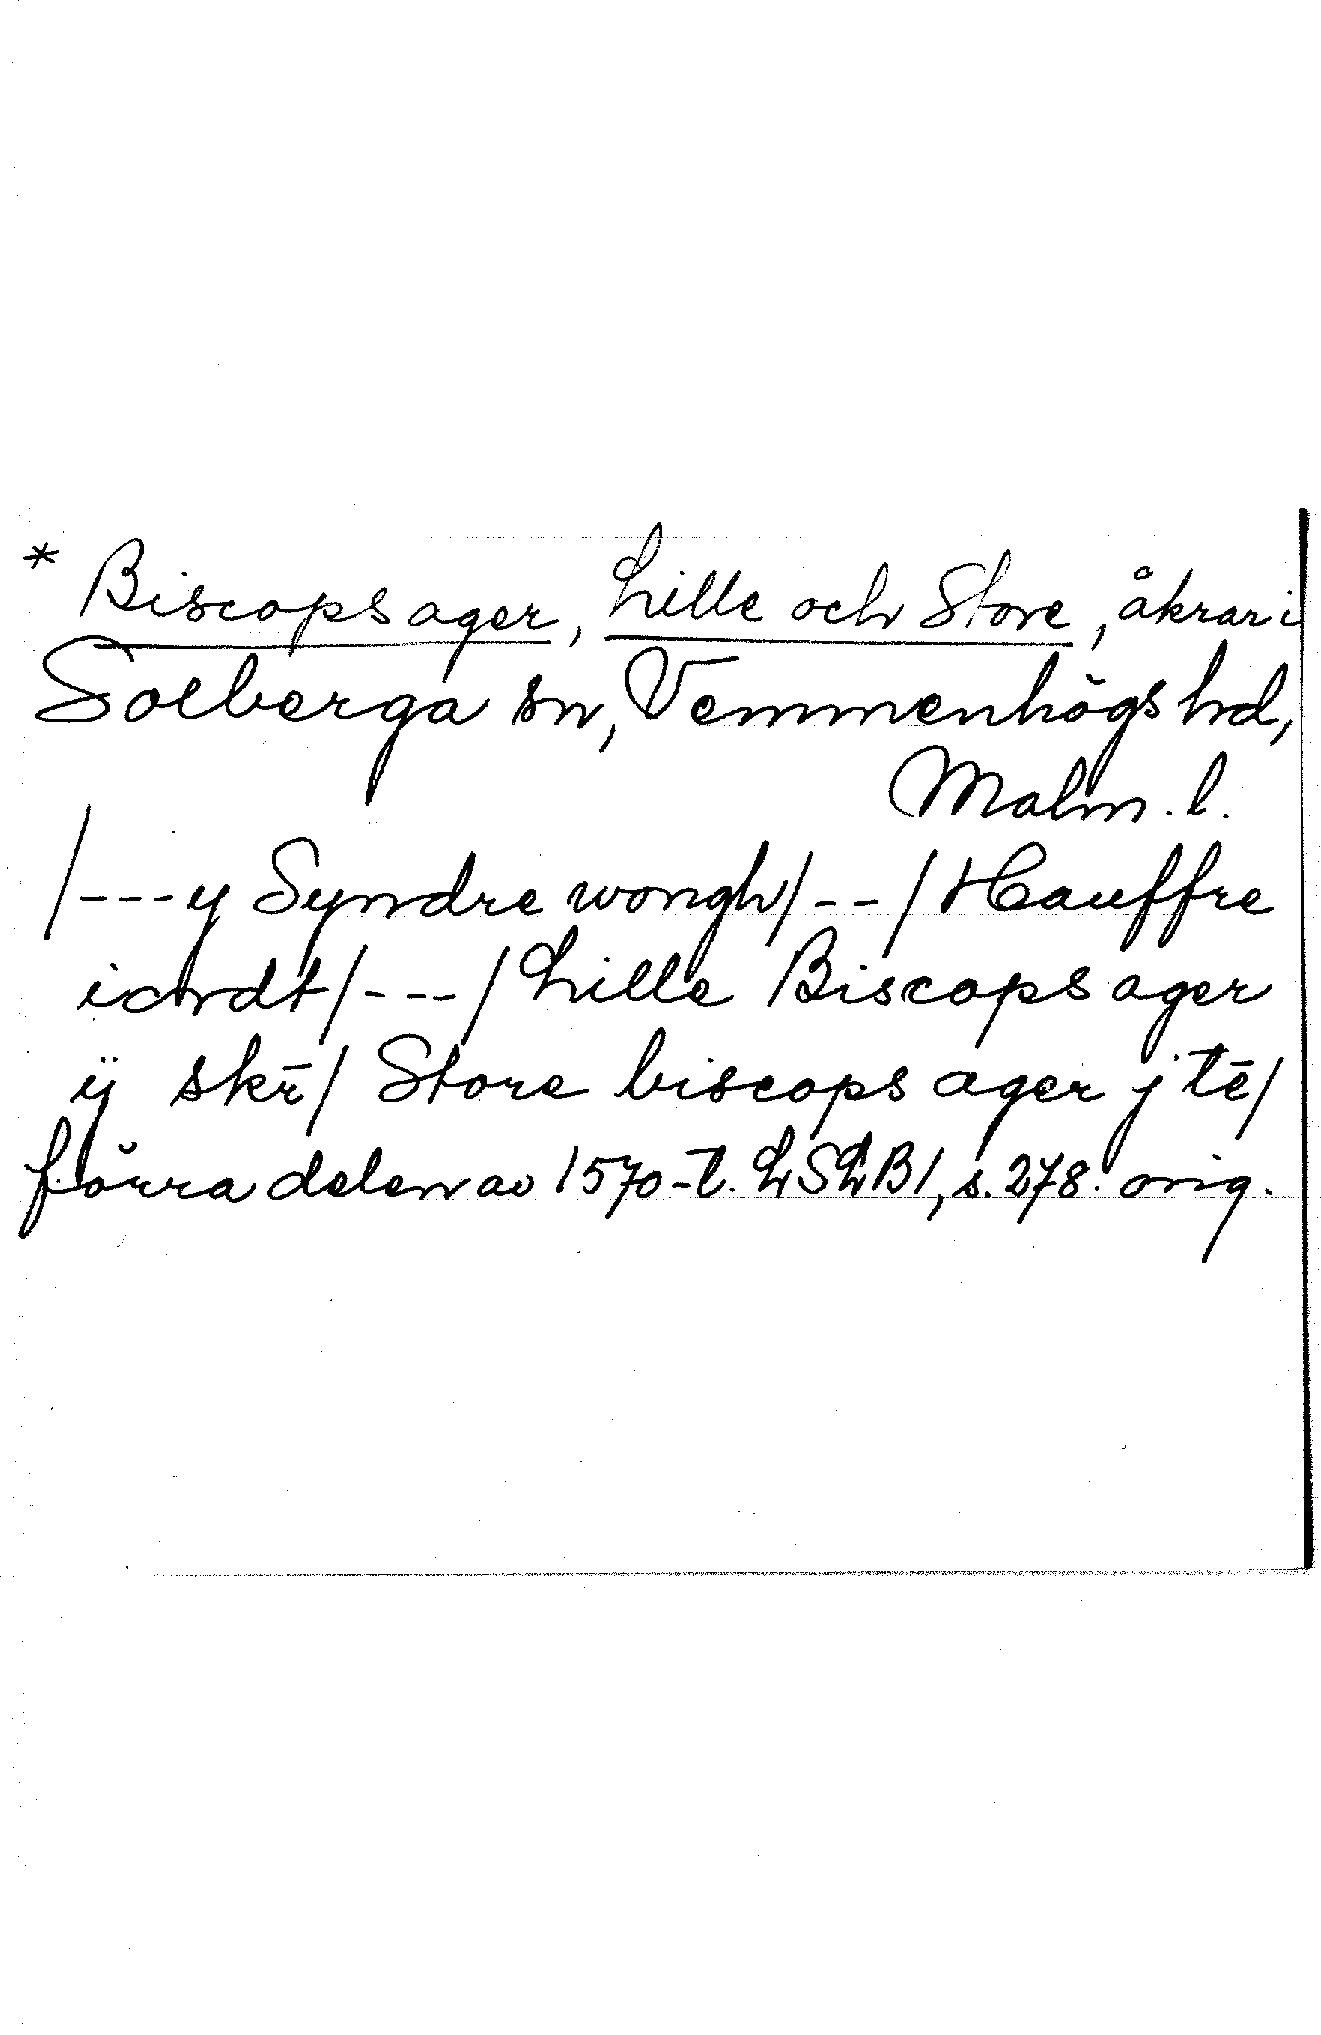 * Biscops ager, Lille och Store, åkrar i
Solberga sn, Vemmenhögs hd,
Malm. l.
/---y Syndre wongh/--/Hauffre
iordt/---/Lille Biscops ager
ÿ skr̄/ Store biscops ager j tē/
förra delen av 1570-t. LSLB1, s. 278. orig.